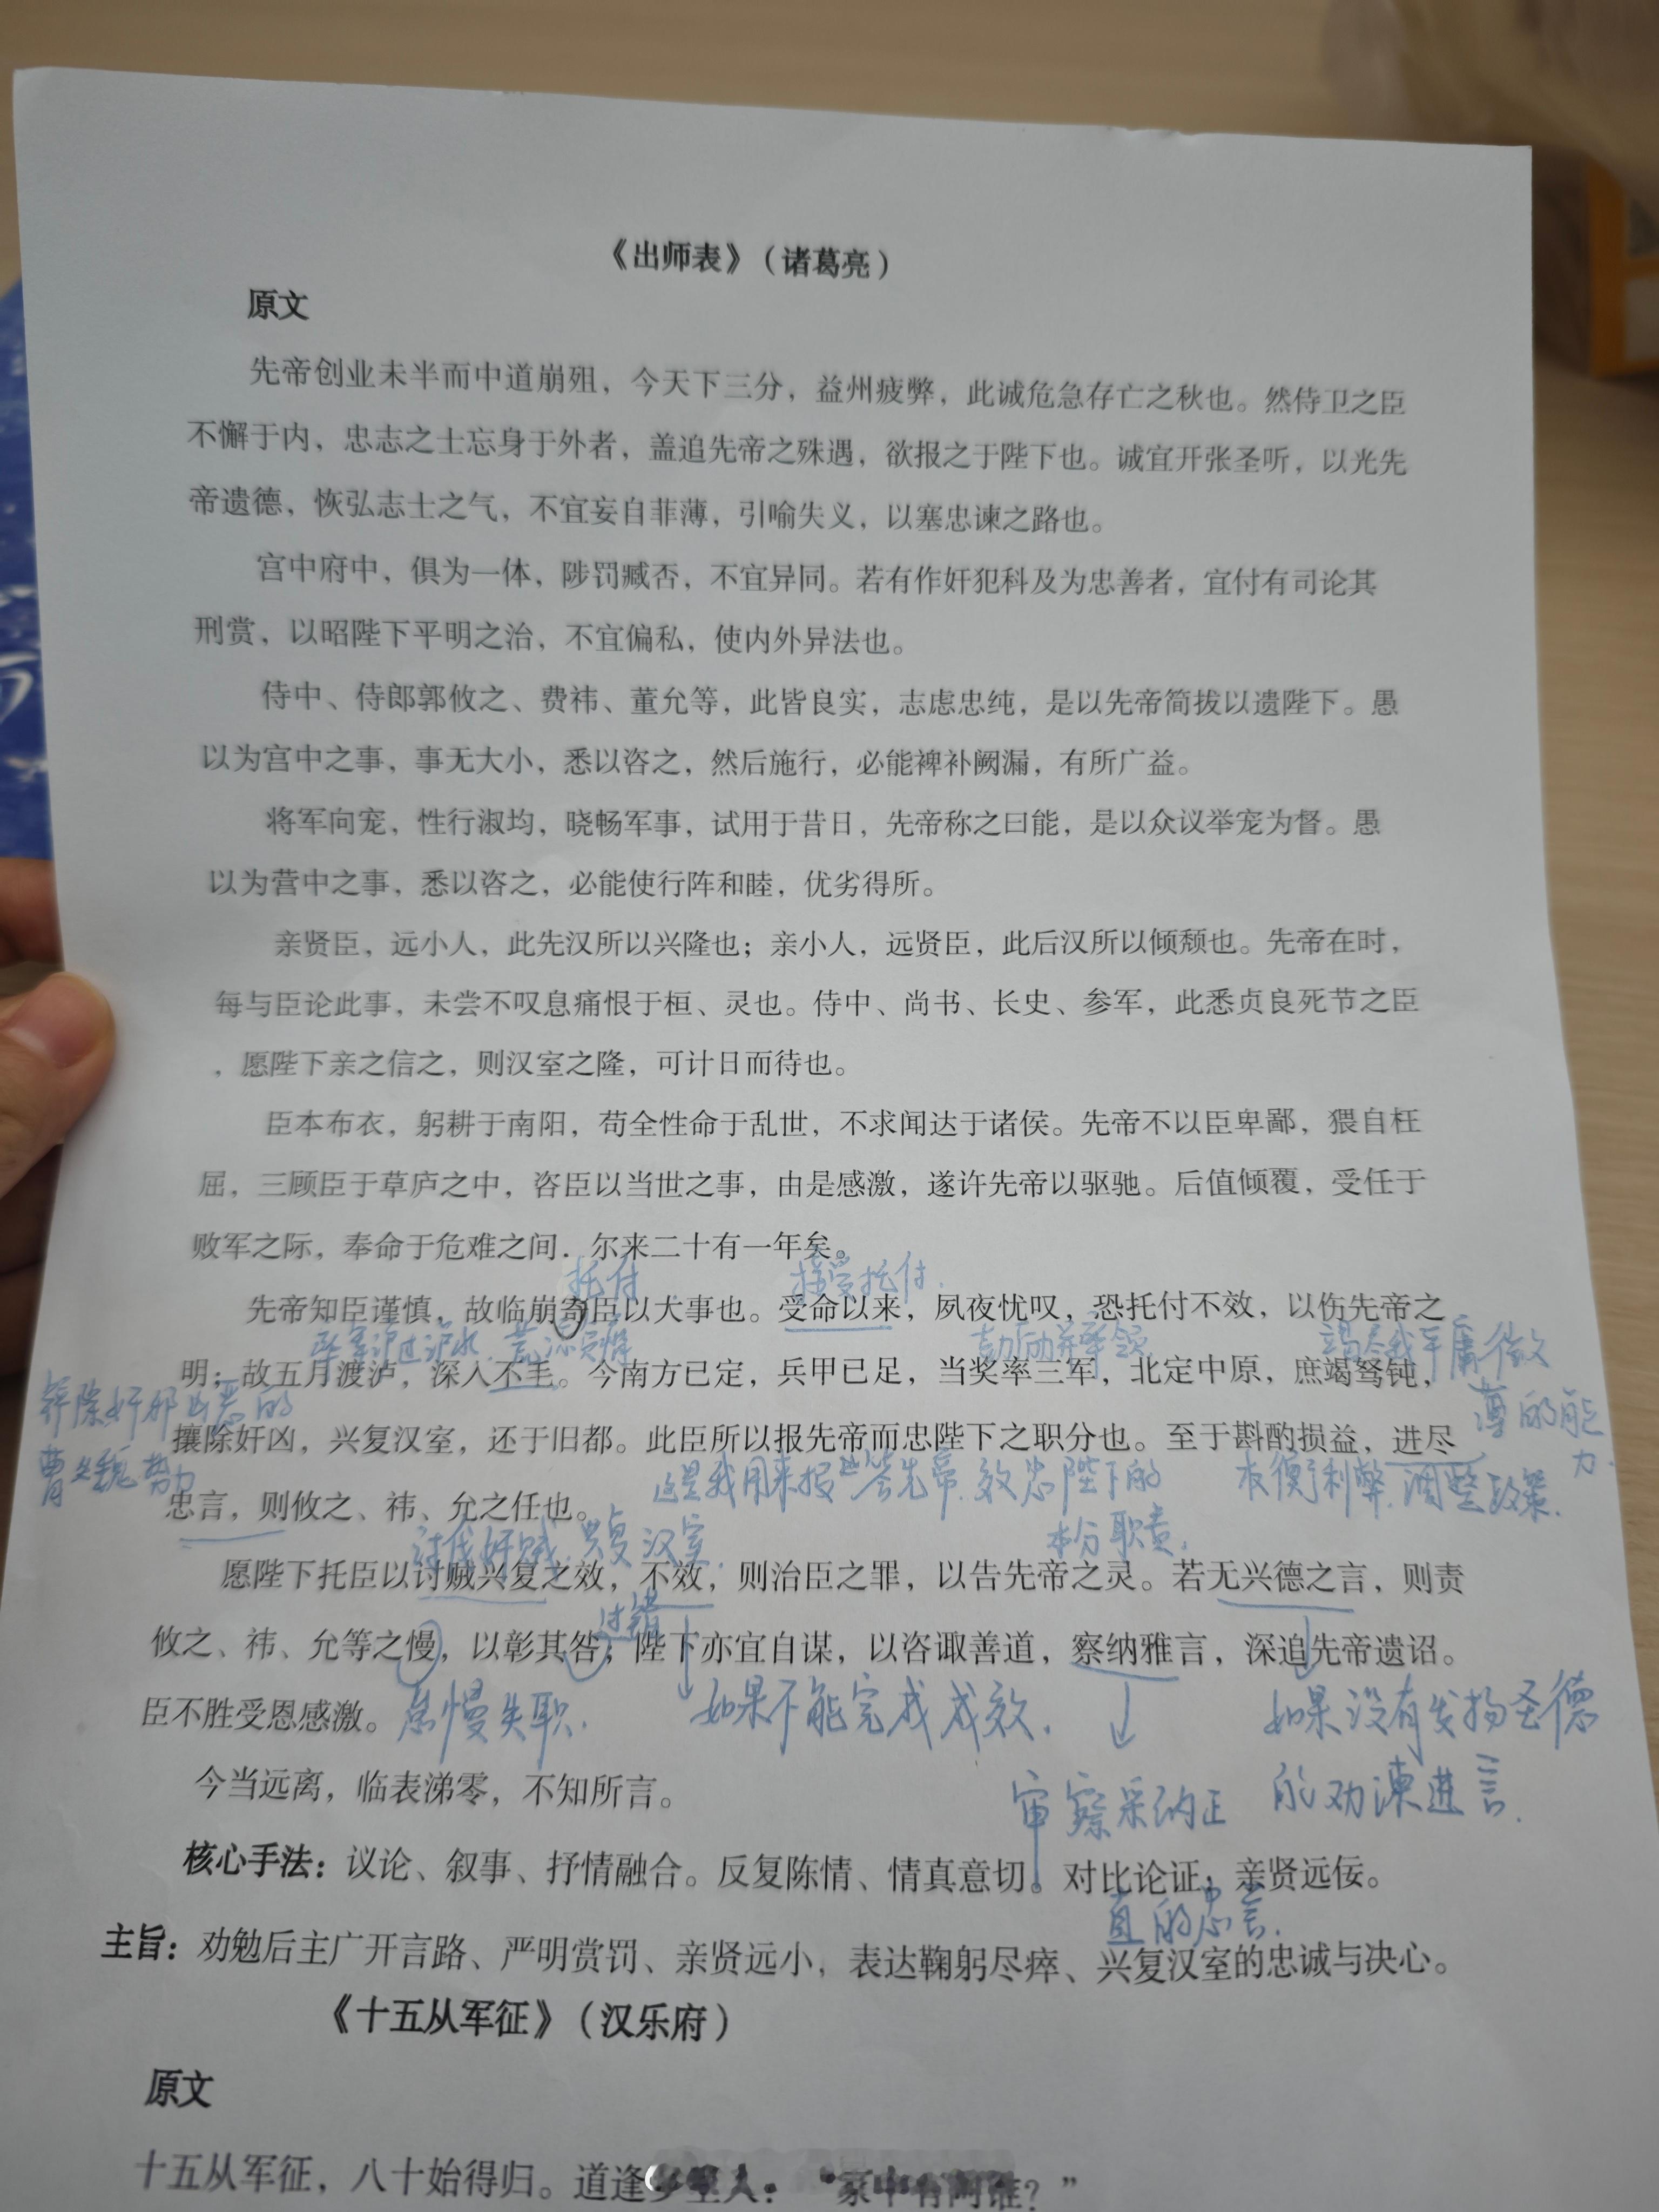 《出师表》（诸葛亮）
原文
先帝创业未半而中道崩殂，今天下三分，益州疲弊，此诚危急存亡之秋也。然侍卫之臣
不懈于内，忠志之士忘身于外者，盖追先帝之殊遇，欲报之于陛下也。诚宜开张圣听，以光先
帝遗德，恢弘志士之气，不宜妄自菲薄，引喻失义，以塞忠谏之路也。
宫中府中，俱为一体，陟罚臧否，不宜异同。若有作奸犯科及为忠善者，宜付有司论其
刑赏，以昭陛下平明之治，不宜偏私，使内外异法也。
侍中、侍郎郭攸之、费祎、董允等，此皆良实，志虑忠纯，是以先帝简拔以遗陛下。愚
以为宫中之事，事无大小，悉以咨之，然后施行，必能裨补阙漏，有所广益。
将军向宠，性行淑均，晓畅军事，试用于昔日，先帝称之曰能，是以众议举宠为督。愚
以为营中之事，悉以咨之，必能使行阵和睦，优劣得所。
亲贤臣，远小人，此先汉所以兴隆也；亲小人，远贤臣，此后汉所以倾颓也。先帝在时，
每与臣论此事，未尝不叹息痛恨于桓、灵也。侍中、尚书、长史、参军，此悉贞良死节之臣
，愿陛下亲之信之，则汉室之隆，可计日而待也。
臣本布衣，躬耕于南阳，苟全性命于乱世，不求闻达于诸侯。先帝不以臣卑鄙，猥自枉
屈，三顾臣于草庐之中，咨臣以当世之事，由是感激，遂许先帝以驱驰。后值倾覆，受任于
败军之际，奉命于危难之间．尔来二十有一年矣。
托付 接受托付.
先帝知臣谨慎，故临崩寄臣以大事也。受命以来，夙夜忧叹，恐托付不效，以伤先帝之
过泸水. 竭尽我平庸微
明；故五月渡泸，深入不毛。今南方已定，兵甲已足，当奖率三军，北定中原，庶竭驽钝，
除奸邪凶恶的 薄的能
攘除奸凶，兴复汉室，还于旧都。此臣所以报先帝而忠陛下之职分也。至于斟酌损益，进尽
曹魏势力 这是我用来报答先帝.效忠陛下的 利弊.调整政策. 力.
忠言，则攸之、祎、允之任也。
讨伐奸贼.兴复汉室. 本分职责.
愿陛下托臣以讨贼兴复之效，不效，则治臣之罪，以告先帝之灵。若无兴德之言，则责
过错
攸之、祎、允等之慢，以彰其咎；陛下亦宜自谋，以咨诹善道，察纳雅言，深追先帝遗诏。
臣不胜受恩感激。怠慢失职. 如果不能完成成效. 如果没有发扬圣德
今当远离，临表涕零，不知所言。 审察采纳正 的劝谏进言.
核心手法：议论、叙事、抒情融合。反复陈情、情真意切。对比论证：亲贤远佞。
直的忠言.
主旨：劝勉后主广开言路、严明赏罚、亲贤远小，表达鞠躬尽瘁、兴复汉室的忠诚与决心。
《十五从军征》（汉乐府）
原文
十五从军征，八十始得归。道逢